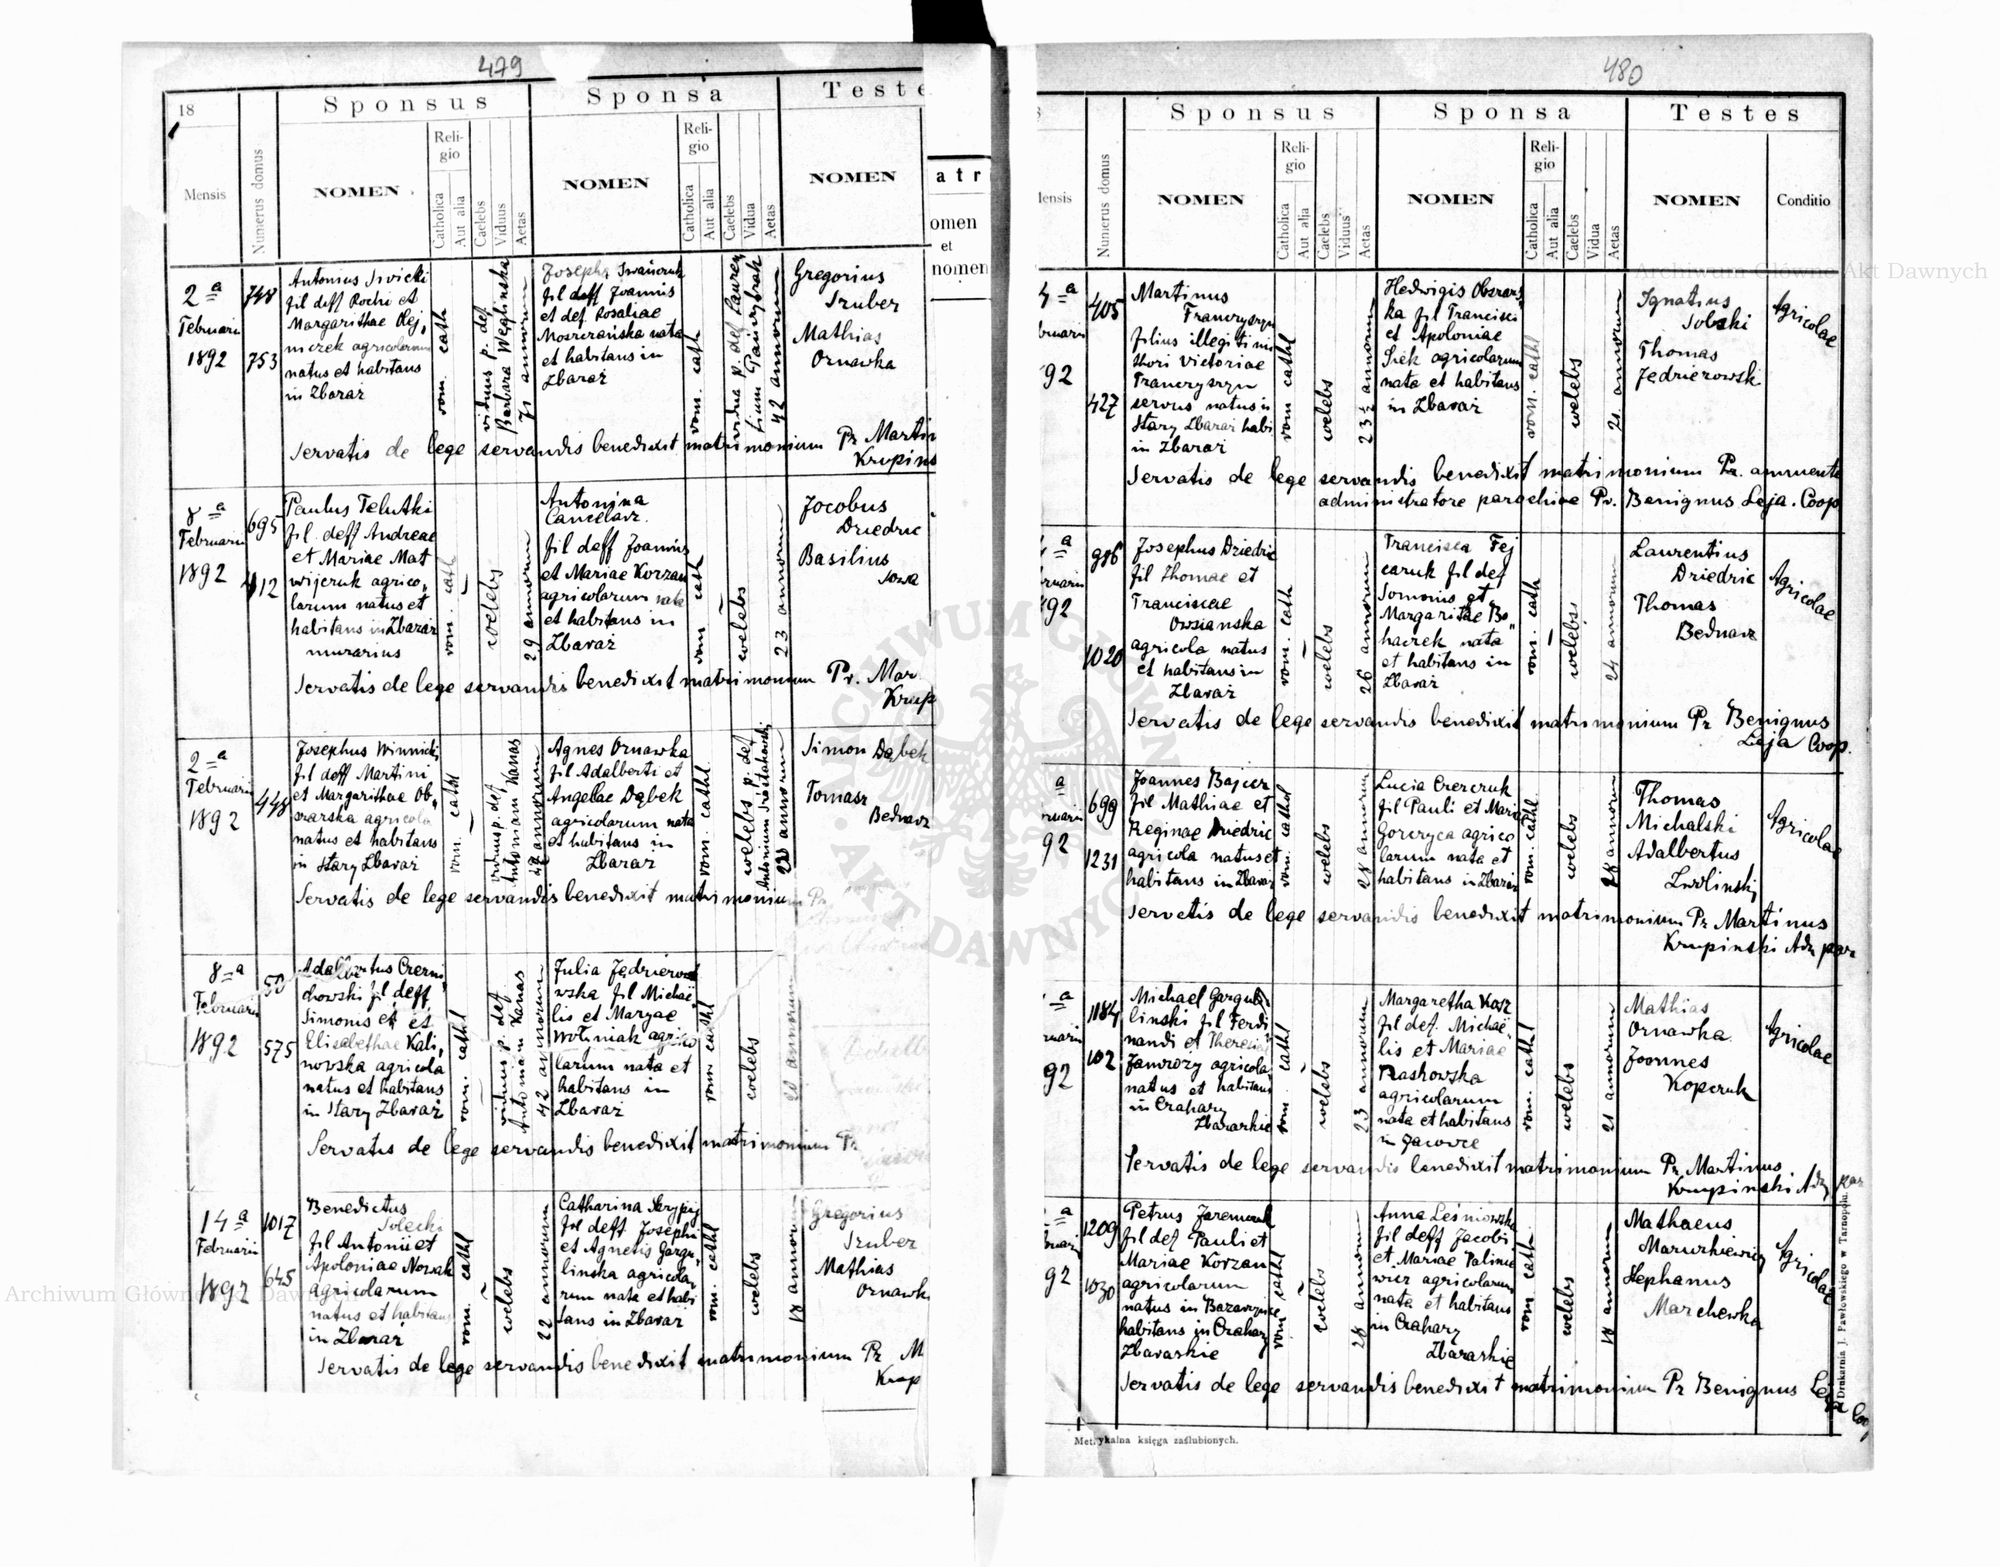 479
18
Sponsus
Sponsa
Teste
Mensis
Numerus domus
NOMEN
Reli-
gio
Catholica
Aut alia
Caelebs
Viduus
Aetas
NOMEN
Reli-
gio
Catholica
Aut alia
Caelebs
Vidua
Aetas
NOMEN
2 a
Februarii
1892
748
753
Antonius
fil deff Rochi et
Margarithae Olej„
niczek agricolarum
natus et habitans
in Zbaraż
rom. cath
viduus p. def
Barbara Weglinska
71 annorum
fil deff Joannis
et def Rosaliae
nata
et habitans in
Zbaraż
rom. cath
vidua p. def
42 annorum
Gregorius
Mathias
Ornawka
Servatis de lege servandis benedixit matrimonium Pr Martin
Krupins
8 a
Februarii
1892
695
412
Paulus
fil. deff Andreae
et Mariae Mat
wijczuk agrico„
larum natus et
habitans in Zbaraż
murarius
rom. cath
coelebs
29 annorum
Antonina
fil deff Joannis
et Mariae Korzan
agricolarum nata
et habitans in
Zbaraż
rom cath
coelebs
23 annorum
Jacobus
Dziedzic
Basilius
Sowa
Servatis de lege servandis benedixit matrimonium Pr. Mar
Krup
2 a
Februarii
1892
448
Josephus Winnicki
fil deff Martini
et Margarithae Ob„
szarska agricola
natus et habitans
in Stary Zbaraż
rom. cathl
viduus p. def
annorum
Agnes Ornawka
fil Adalberti et
Angelae Dąbek
agricolarum nata
et habitans in
Zbaraż
rom. cathl.
coelebs p. def
annorum
Simon Dąbek
Tomasz
Bednarz
Servatis de lege servandis benedixit matrimonium Pr
8 a
Februarii
1892
50
575
Adalbertus Czerni„
chowski fil deff
Simonis et
Elisabethae Kali„
nowska agricola
natus et habitans
in Stary Zbaraż
rom. cathl
viduus p. def
42 annorum
Julia Jędrzerow
wska fil Michaë
lis et Maryae
Wołyniak agrico
larum nata et
habitans in
Zbaraż
rom cathl
coelebs
20 annorum
Servatis de lege servandis benedixit matrimonium Pr
14 a
Februarii
1892
1017
645
Benedictus
Solecki
fil Antonii et
Apoloniae Nowak
agricolarum
natus et habitans
in Zbaraż
rom. cathl
coelebs
22 annorum
Catharina
fil deff Josephi
et Agnetis Gargu„
linska agricola„
rum nata et habi
tans in Zbaraż
rom. cathl
coelebs
18 annorum
Gregorius
Mathias
Ornawk
Servatis de lege servandis benedixit matrimonium Pr M
Krup
atr
omen
et
nomen
480
Sponsus
Sponsa
Testes
ensis
Numerus domus
NOMEN
Reli-
gio
Catholica
Aut alia
Caelebs
Viduus
Aetas
NOMEN
Reli-
gio
Catholica
Aut alia
Caelebs
Vidua
Aetas
NOMEN
Conditio
4 a
92
405
427
Martinus
Franczyszyn
filius illegitimi
thori Victoriae
Franczyszyn
servus natus in
Stary Zbaraż habi
in Zbaraż
rom cathl
coelebs
23½ annorum
Hedwigis Obszars„
ka fil Francisci
et Apoloniae
Siek agricolarum
nata et habitans
in Zbaraż
rom. cathl
coelebs
21 annorum
Ignatius
Thomas
Jędrzerowski
Agricolae
Servatis de lege servandis benedixit matrimonium Pr. annuente
administratore parochiae Pr. Benignus Leja. Coop
a
92
986
1020
Josephus Dziedzic
fil Thomae et
Franciscae
Owsianska
agricola natus
et habitans in
Zbaraż
rom. cath
coelebs
26 annorum
Francisca Fej
caruk fil def
et
Margaritae Bo„
haczek nata
et habitans in
Zbaraż
rom. cath
coelebs
24 annorum
Laurentius
Dziedzic
Thomas
Bednarz
Agricolae
Servatis de lege servandis benedixit matrimonium Pr Benignus
Leja Coop.
a
92
699
1231
Joannes Bajcer
fil Mathiae et
Reginae Dziedzic
agricola natus et
habitans in Zbaraż
rom. cathol
coelebs
28 annorum
Lucia Czerczuk
fil Pauli et Mariae
Gorczyca agrico
larum nata et
habitans in Zbaraż
rom. cathl.
coelebs
28 annorum
Thomas
Michalski
Adalbertus
Zwolinski
Agricolae
Servatis de lege servandis benedixit matrimonium Pr Martinus
Krupinski Adm par
a
92
1184
102
Michael Gargu
linski fil Ferdi
nandi et Theresiae
Jawrozy agricola
natus et habitans
in Czahary
Zbarazkie
rom. cathl
coelebs
23 annorum
Margaretha Kasz
fil def. Michaë
lis et Mariae
Raskowska
agricolarum
nata et habitans
in
rom. cathl
coelebs
21 annorum
Mathias
Ornawka
Joannes
Kopczuk
Agricolae
Servatis de lege servandis benedixit matrimonium Pr Martinus
Krupinski Adm par
a
92
1209
1030
Petrus Jaremczuk
fil def Pauli et
Mariae Korzan
agricolarum
natus in
habitans in Czahary
Zbarazkie
rom cathl
coelebs
28 annorum
Anna Leśniowska
fil deff Jacobi
et Mariae Palinie
wicz agricolarum
nata et habitans
in Czahary
Zbarazkie
rom cath
coelebs
18 annorum
Mathaeus
Mazurkiewicz
Stephanus
Marchewka
Agricolae
Servatis de lege servandis benedixit matrimonium Pr Benignus Leja
Coop
Metrykalna księga zaślubionych.
Drukarnia J. Pawłowskiego w Tarnopolu.
Archiwum Główne Akt Dawnych
Archiwum Główne Akt Dawnych
ARCHIWUM GŁÓWNE
AKT DAWNYCH